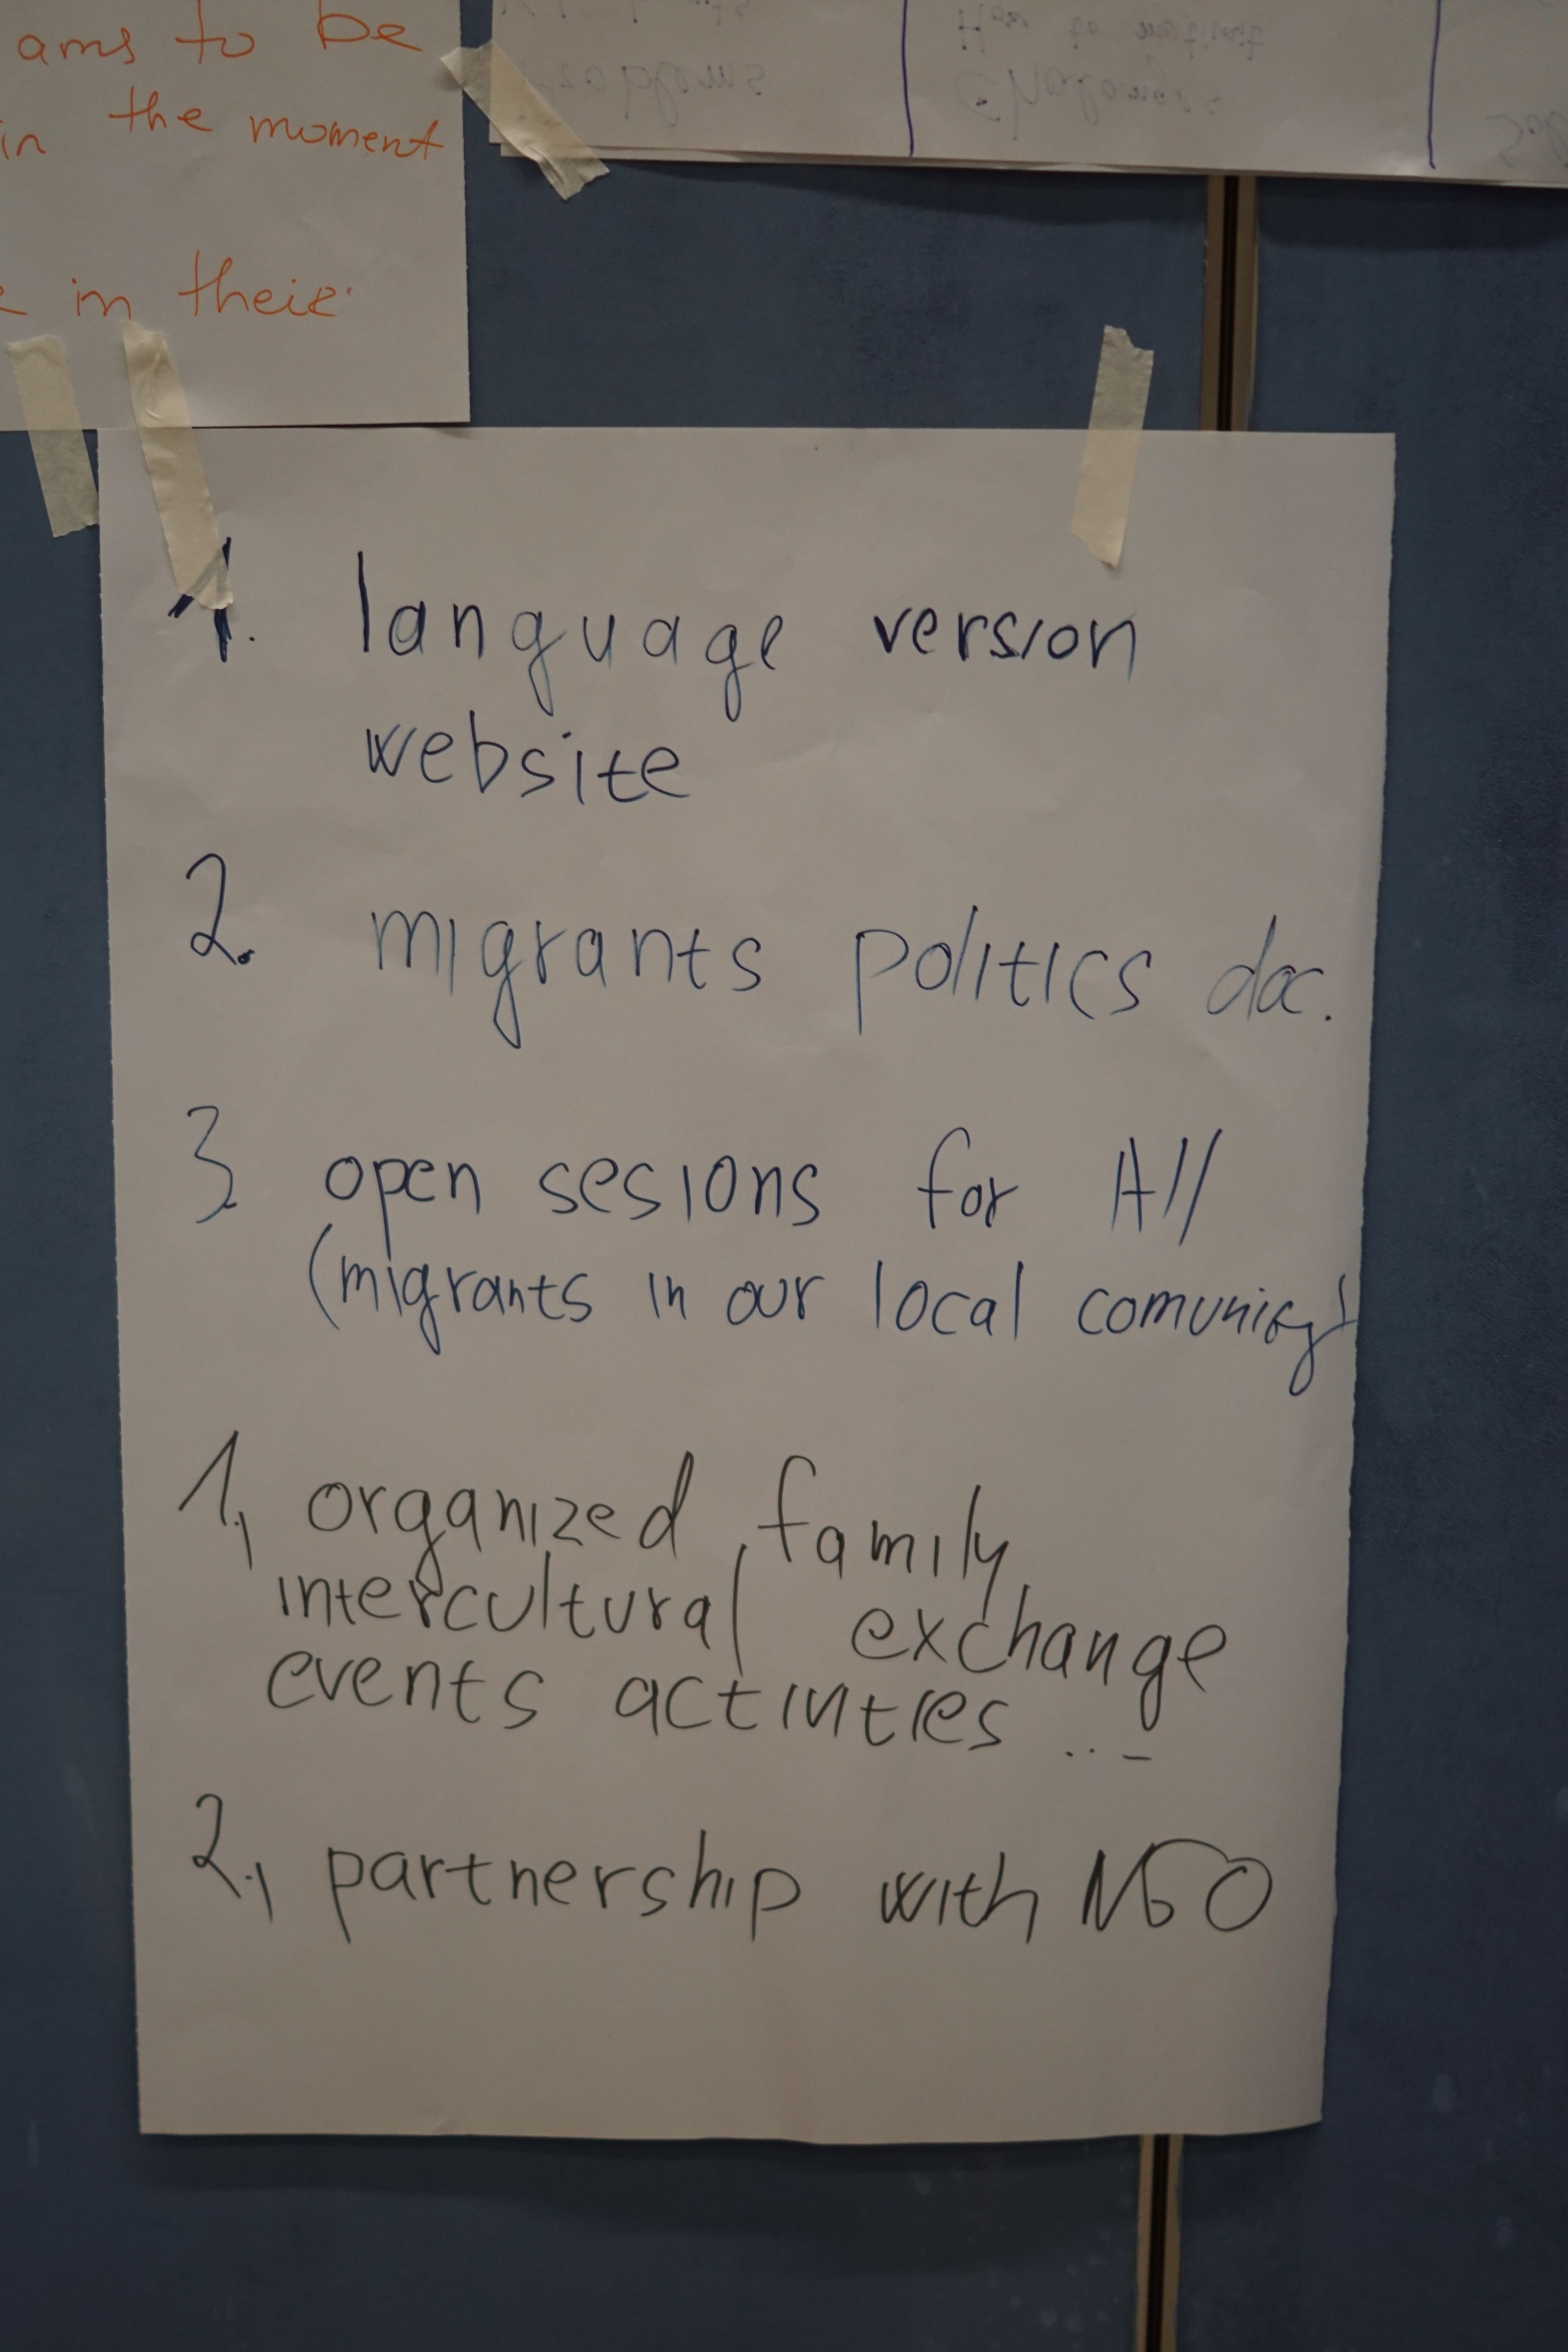 ams to be
in the moment
in their
1. language version
website
2. migrants politics doc.
3. open sesions for All
(migrants in our local comunity)
1, organized family
intercultural exchange
events activities ...
2., partnership with NGO